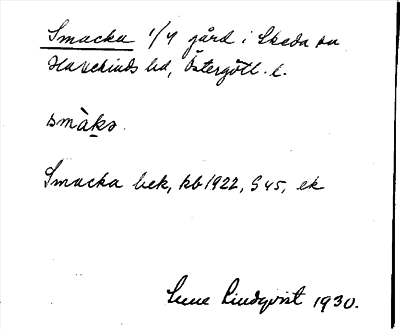 Smacka 1/4 gård i Skeda sn
Hanekinds hd, Östergötl. l.
smàka
Smacka bek, kb 1922, S 45, ek
Sune Lindqvist 1930.